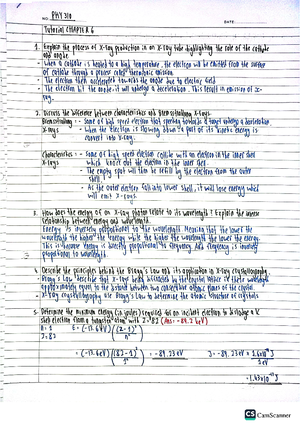 NO. PHY 310 DATE
Tutorial CHAPTER 6
1. Explain the process of X-ray production in an X-ray tube highlighting the role of the cathode
and anode.
- When a cathode is heated to a high temperature, the electron will be emitted from the surface
of cathode through a process called thermionic emission.
- The electron then accelerated towards the anode due to electric field.
- The electron hit the anode it will undergo a deceleration. This result in emission of x-
ray.
2. Discuss the difference between characteristics and Bremsstrahlung X-rays.
Bremsstrahlung : - Some of high speed electron that speeding towards a target undergo a deceleration.
X-rays - When the electron is slowing down, a part of its kinetic energy is
convert into X-ray.
Characteristics : - Some of high speed electron collide with an electron in the inner shell
X-rays which knock out the electron in the inner shell.
- The empty spot will then be refill by the electron from the outer
shell.
- As the outer electron fall into lower shell, it will lose energy which
will emit X-rays.
3. How does the energy of an X-ray photon relate to its wavelength? Explain the inverse
relationship between energy and wavelength.
Energy is inversely proportional to the wavelength. Meaning that the lower the
wavelength the higher the energy while the higher the wavelength the lower the energy.
This is because energy is directly proportional to frequency and frequency is inversely
proportional to wavelength.
4. Describe the principles behind the Bragg's Law and its application in X-ray crystallography.
- Bragg's Law describe that X-ray being diffracted by the crystal lattice if their wavelength
approximately equal to the distance between two consecutive atomic plane of the crystal.
- X-ray crystallography use Bragg's Law to determine the atomic structure of crystals.
5. Determine the minimum energy (in joules) required for an incident electron to dislodge a K
shell electron from a atom with Z=82 (Ans: -89.2 keV)
n = 1 E = (-13.6eV) (Z-1)²
Z = 82 n²
= (-13.6eV) (82-1)² = -89.23 keV J = -89.23 eV × 1.6×10⁻¹⁹ J
1² 1 eV
CS CamScanner